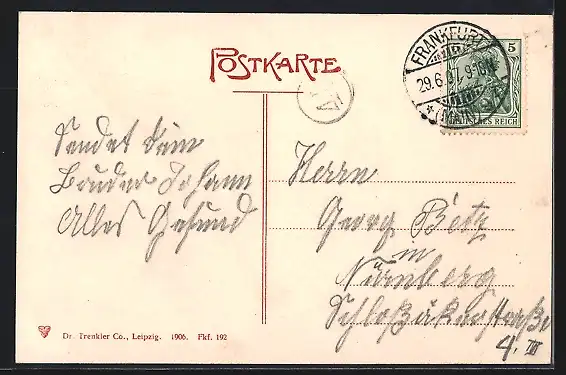 POSTKARTE
FRANKFURT
29.6.07.
* (MAIN)
5
DEUTSCHES REICH
Sendet dein
Bruder Johann
Alles Gesund
Herrn
Georg Betz
in
Nürnberg
Schloßäckerstraße
4. III
Dr. Trenkler Co., Leipzig. 1906. Fkf. 192